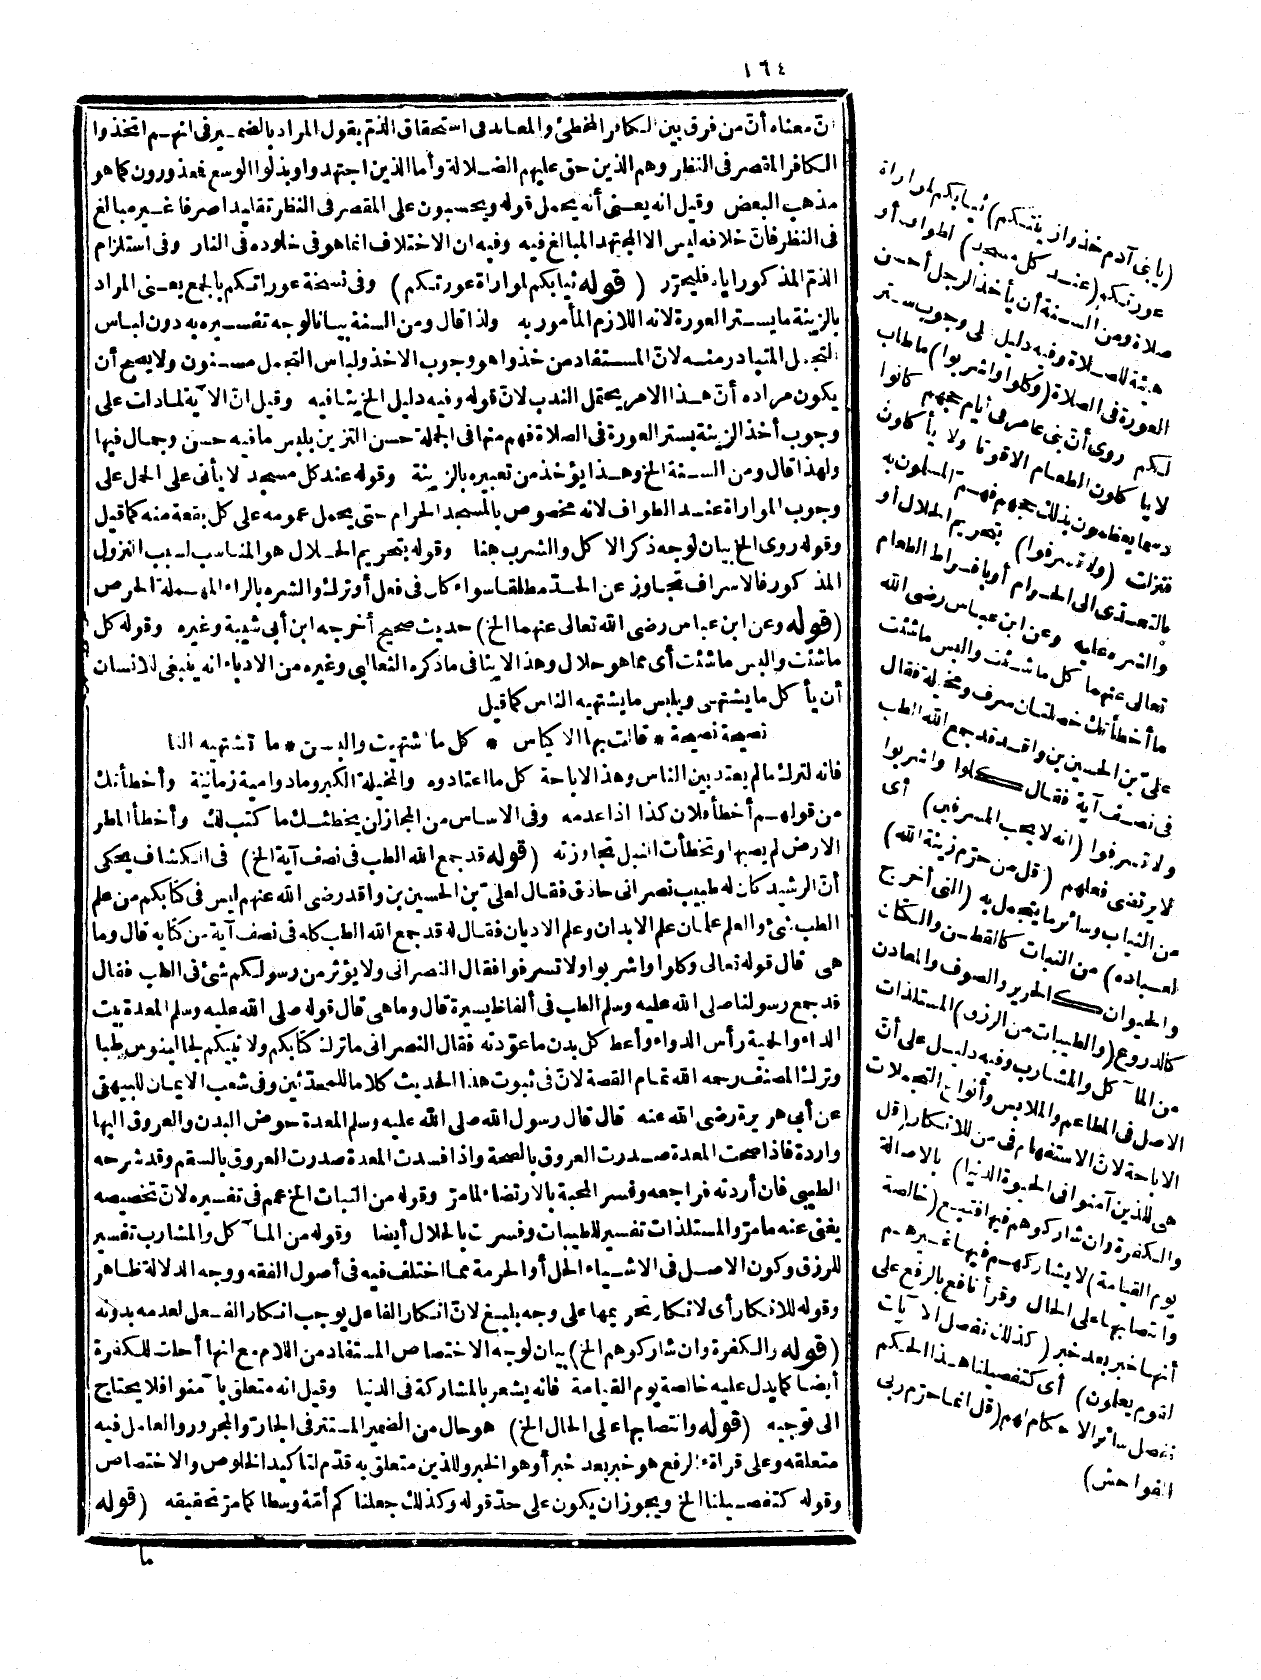 ١٦٤
انّ معناه أنّ من فرق بين الكافر المخطئ والمعاند فى استحقاق الذمّ يقول المراد بالضمير فى انهم اتخذوا
الكافر المقصر فى النظر وهم الذين حق عليهم الضلالة وأما الذين اجتهدوا وبذلوا الوسع فمعذورون كما هو
مذهب البعض وقيل انه يعنى أنه يحمل قوله ويحسبون على المقصر فى النظر تقليدا صرفا غير مبالغ
فى النظر فانّ خلافه ليس الا المجتهد المبالغ فيه وفيه ان الاختلاف انما هو فى خلوده فى النار وفى استلزام
الذمّ المذكور اياه فليحرّر (قوله ثيابكم لمواراة عورتكم) وفى نسخة عوراتكم بالجمع يعنى المراد
بالزينة ما يستر العورة لانه اللازم المأمور به ولذا قال ومن السنة بيانا لوجه تفسيره به دون لباس
التجمل المتبادر منه لانّ المستفاد من خذوا هو وجوب الاخذ ولباس التجمل مسنون ولا يصح أن
يكون مراده أنّ هذا الامر يحتمل الندب لانّ قوله وفيه دليل الخ ينافيه وقيل انّ الآية لما دلت على
وجوب أخذ الزينة بستر العورة فى الصلاة فهم منها فى الجملة حسن التزين بلبس ما فيه حسن وجمال فيها
ولهذا قال ومن السنة الخ وهذا يؤخذ من تعبيره بالزينة وقوله عند كل مسجد لا يأبى على الحمل على
وجوب المواراة عند الطواف لانه مخصوص بالمسجد الحرام حتى يحمل عمومه على كل بقعة منه كما قيل
وقوله روى الخ بيان لوجه ذكر الاكل والشرب هنا وقوله بتحريم الحلال هو المناسب لسبب النزول
المذكور فالاسراف تجاوز عن الحدّ مطلقا سواء كان فى فعل أو ترك والشره بالراء المهملة الحرص
(قوله وعن ابن عباس رضى الله تعالى عنهما الخ) حديث صحيح أخرجه ابن أبى شيبة وغيره وقوله كل
ما شئت والبس ما شئت أى مما هو حلال وهذا لا ينافى ما ذكره الثعالبى وغيره من الادباء انه ينبغى للانسان
أن يأكل ما يشتهى ويلبس ما يشتهيه الناس كما قيل
نصيحة نصيحة * قالت بها الاكياس * كل ما اشتهيت والبسن * ما تشتهيه النا
فانه لترك ما لم يعتد بين الناس وهذا لاباحة كل ما اعتادوه والمخيلة الكبر وما دوامية زمانية وأخطأتك
من قولهم أخطأ فلان كذا اذا عدمه وفى الاساس من المجاز لن يخطئك ما كتب لك وأخطأ المطر
الارض لم يصبها وتخطأت النبل تجاوزته (قوله قد جمع الله الطب فى نصف آية الخ) فى الكشاف يحكى
أنّ الرشيد كان له طبيب نصرانى حاذق فقال لعلىّ بن الحسين بن واقد رضى الله عنهم ليس فى كتابكم من علم
الطب شئ والعلم علمان علم الابدان وعلم الاديان فقال له قد جمع الله الطب كله فى نصف آية من كتابه قال وما
هى قال قوله تعالى وكلوا واشربوا ولا تسرفوا فقال النصرانى ولا يؤثر من رسولكم شئ فى الطب فقال
قد جمع رسولنا صلى الله عليه وسلم الطب فى ألفاظ يسيرة قال وما هى قال قوله صلى الله عليه وسلم المعدة بيت
الداء والحمية رأس الدواء وأعط كل بدن ما عوّدته فقال النصرانى ما ترك كتابكم ولا نبيكم لجالينوس طبا
وترك المصنف رحمه الله تمام القصة لانّ فى ثبوت هذا الحديث كلاما للمحدّثين وفى شعب الايمان للبيهقى
عن أبى هريرة رضى الله عنه قال قال رسول الله صلى الله عليه وسلم المعدة حوض البدن والعروق اليها
واردة فاذا صحت المعدة صدرت العروق بالصحة واذا فسدت المعدة صدرت العروق بالسقم وقد شرحه
الطيبى فان أردته فراجعه وفسر المحبة بالارتضاء لما مرّ وقوله من النبات الخ عمم فى تفسيره لانّ تخصيصه
يغنى عنه ما مرّ والمستلذات تفسير للطيبات وفسرت بالحلال أيضا وقوله من المآكل والمشارب تفسير
للرزق وكون الاصل فى الاشياء الحل أو الحرمة مما اختلف فيه فى أصول الفقه ووجه الدلالة ظاهر
وقوله للانكار أى لانكار تحريمها على وجه بليغ لانّ انكار الفاعل يوجب انكار الفعل لعدمه بدونه
(قوله والكفرة وان شاركوهم الخ) بيان لوجه الاختصاص المستفاد من اللام مع انها أحلت للكفرة
أيضا كما يدل عليه خالصة يوم القيامة فانه يشعر بالمشاركة فى الدنيا وقيل انه متعلق بآمنوا فلا يحتاج
الى توجيه (قوله وانتصابها على الحال الخ) هو حال من الضمير المستتر فى الجارّ والمجرور والعامل فيه
متعلقه وعلى قراءة الرفع هو خبر بعد خبر أو هو الخبر وللذين متعلق به قدّم لتأكيد الخلوص والاختصاص
وقوله كتفصيلنا الخ ويجوز ان يكون على حدّ قوله وكذلك جعلناكم أمّة وسطا كما مرّ تحقيقه (قوله
ما
(يا بنى آدم خذوا زينتكم) ثيابكم لمواراة
عورتكم (عند كل مسجد) لطواف أو
صلاة ومن السنة أن يأخذ الرجل أحسن
هيئة للصلاة وفيه دليل على وجوب ستر
العورة فى الصلاة (وكلوا واشربوا) ما طاب
لكم روى أنّ بنى عامر فى أيام حجهم كانوا
لا يأكلون الطعام الا قوتا ولا يأكلون
دسما يعظمون بذلك حجهم فهمّ المسلمون به
فنزلت (ولا تسرفوا) بتحريم الحلال أو
بالتعدّى الى الحرام أو بافراط الطعام
والشره عليه وعن ابن عباس رضى الله
تعالى عنهما كل ما شئت والبس ما شئت
ما أخطأتك خصلتان سرف ومخيلة فقال
علىّ بن الحسين بن واقد قد جمع الله الطب
فى نصف آية فقال كلوا واشربوا
ولا تسرفوا (انه لا يحب المسرفين) أى
لا يرتضى فعلهم (قل من حرّم زينة الله)
من الثياب وسائر ما يتجمل به (التى أخرج
لعباده) من النبات كالقطن والكتان
والحيوان كالحرير والصوف والمعادن
كالدروع (والطيبات من الرزق) المستلذات
من المآكل والمشارب وفيه دليل على أنّ
الاصل فى المطاعم والملابس وأنواع التجملات
الاباحة لانّ الاستفهام فى من للانكار (قل
هى للذين آمنوا فى الحيوة الدنيا) بالاصالة
والكفرة وان شاركوهم فيها فتبع (خالصة
يوم القيامة) لا يشاركهم فيها غيرهم
وانتصابها على الحال وقرأ نافع بالرفع على
أنها خبر بعد خبر (كذلك نفصل الآيات
لقوم يعلمون) أى كتفصيلنا هذا الحكم
نفصل سائر الاحكام لهم (قل انما حرّم ربى
الفواحش)